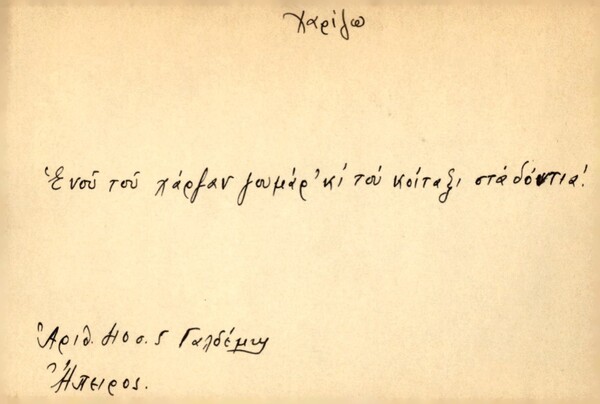 χαρίζω
Ἑνοῦ τοῦ χάρζαν γουμάρ' κὶ τοὺ κοίταζι στὰ δόντια!
Ἀριθ. 110 σ. 5 Γαλδέμη
Ἤπειρος.